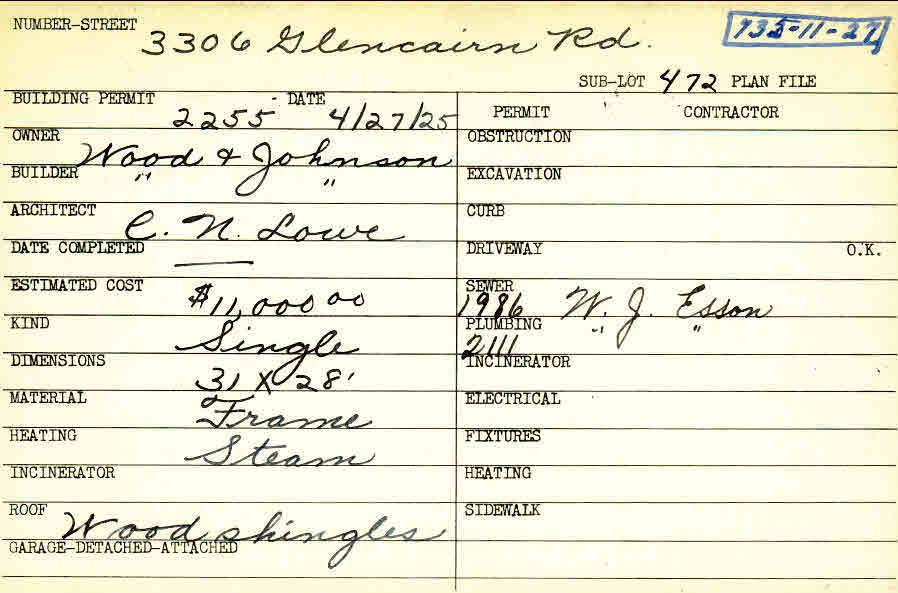 NUMBER-STREET 3306 Glencairn Rd. 735-11-27
SUB-LOT 472 PLAN FILE
BUILDING PERMIT 2255 DATE 4/27/25
PERMIT CONTRACTOR
OWNER Wood & Johnson
OBSTRUCTION
BUILDER " "
EXCAVATION
ARCHITECT C. N. Lowe
CURB
DATE COMPLETED —
DRIVEWAY O.K.
ESTIMATED COST $11,000 00
SEWER 1986 W. J. Esson
KIND Single
PLUMBING 2111 " "
DIMENSIONS 31 X 28'
INCINERATOR
MATERIAL Frame
ELECTRICAL
HEATING Steam
FIXTURES
INCINERATOR
HEATING
ROOF Wood shingles
SIDEWALK
GARAGE-DETACHED-ATTACHED